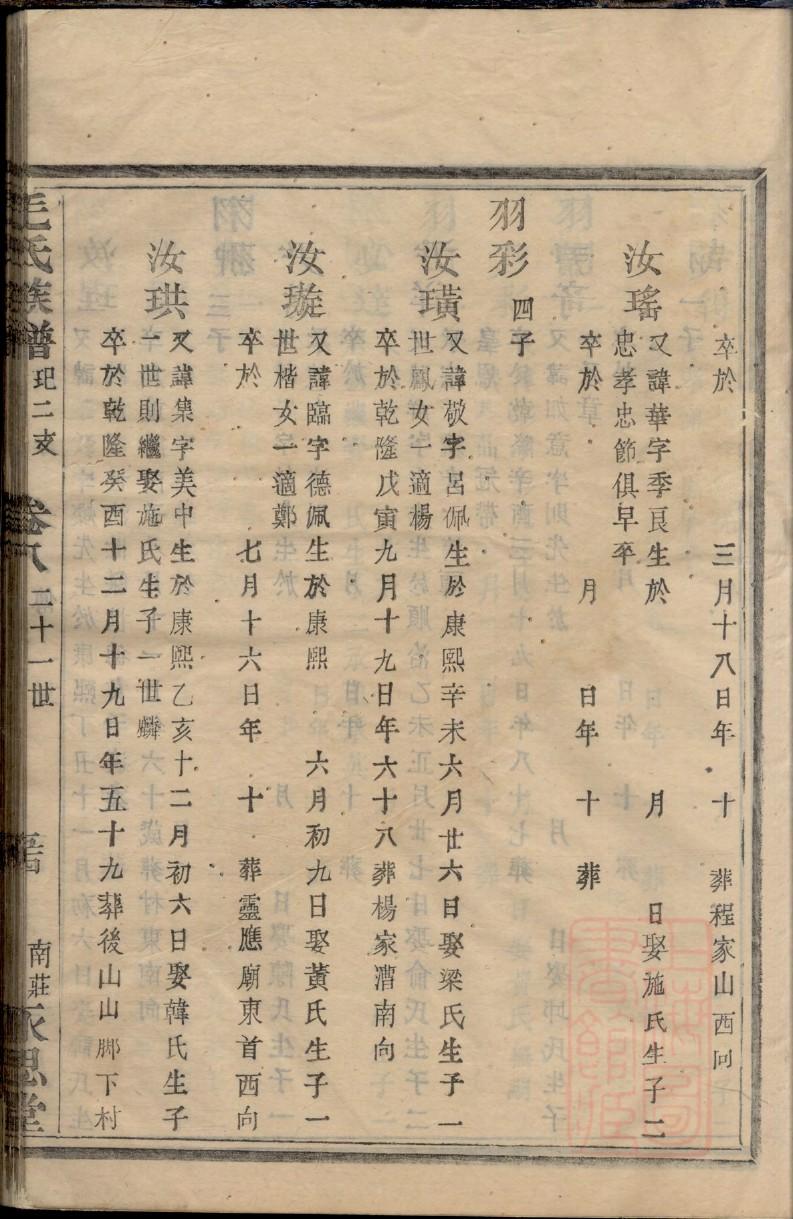 卒於 三月十八日年 十 葬程家山西向
汝瑤 又諱華字季良生於 年 月 日娶施氏生子二
忠孝忠節俱早卒
卒於 月 日年 十 葬
羽彩 四子
汝璜 又諱敬字呂佩生於康熙辛未六月廿六日娶梁氏生子一
世鳳女一適楊
卒於乾隆戊寅九月十九日年六十八葬楊家漕南向
汝璇 又諱臨字德佩生於康熙 六月初九日娶黃氏生子一
世楷女一適鄭
卒於 七月十六日年 十 葬靈應廟東首西向
汝珙 又諱集字美中生於康熙乙亥十二月初六日娶韓氏生子
一世則繼娶施氏生子一世麟
卒於乾隆癸酉十二月十九日年五十九葬後山山脚下村
毛氏族譜 玘二支 卷八 二十一世 南莊永思堂